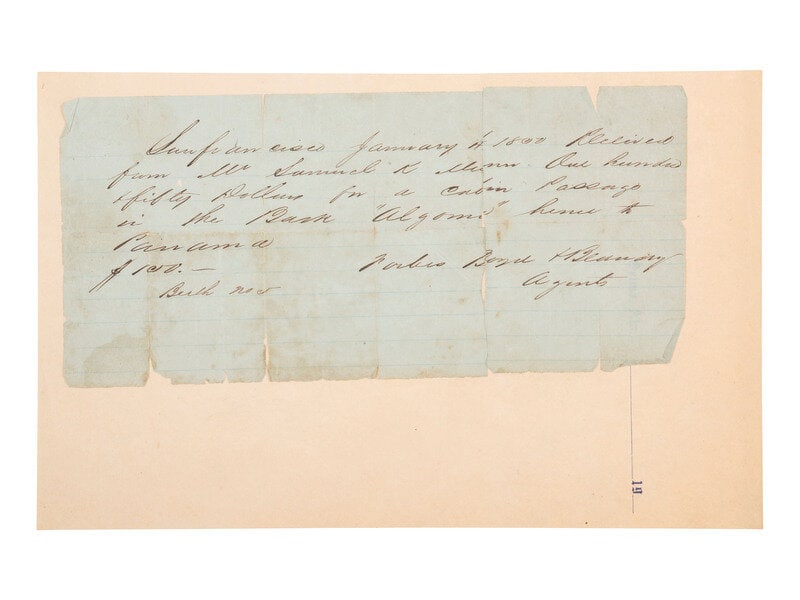 San francisco January 4 1850 Received
from Mr Samuel K Munn. One hundred
& fifty Dollars for a cabin Passage
in the Bark "Algoma" hence to
Panama
$150.—
Forbes Boyd &
Agents
Berth no
19